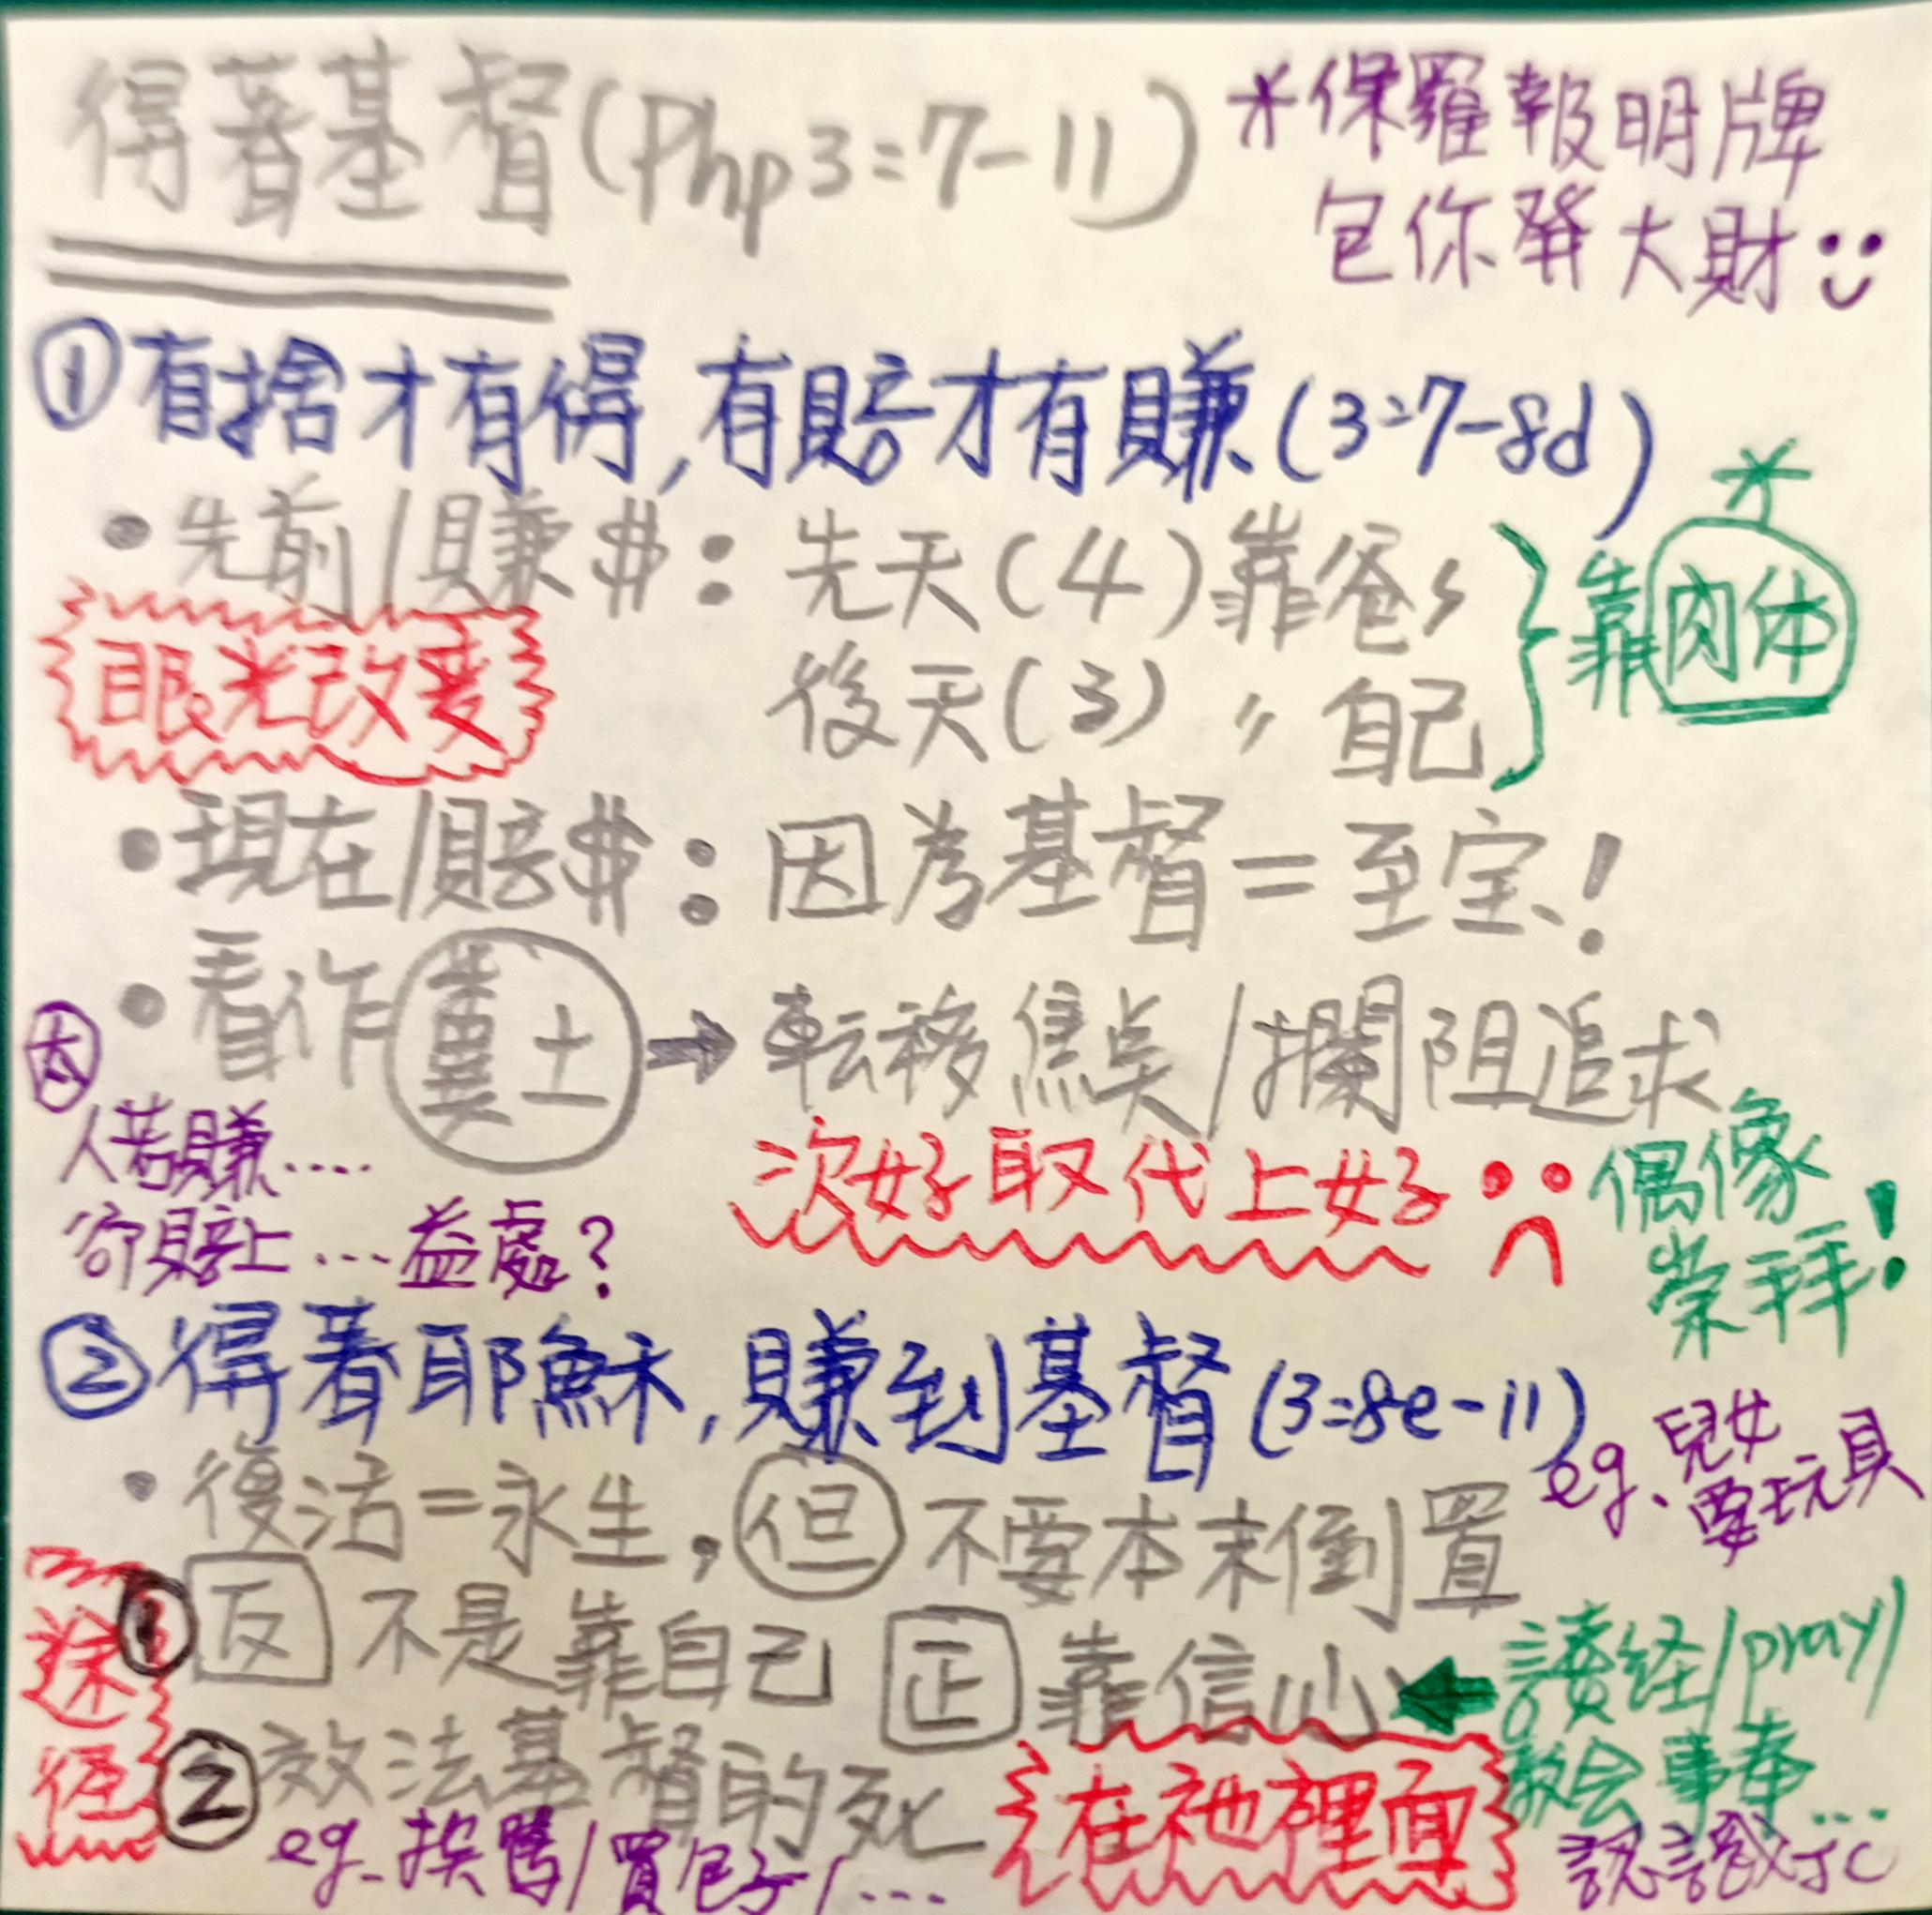 得著基督(Php3:7-11)
*保羅報明牌
包你發大財
①有捨才有得,有賠才有賺(3:7-8d)
•先前/賺$:先天(4)靠爸々
後天(3)〃自己
*
靠肉体
眼光改变
•現在/賠$:因為基督=至宝!
•看作糞土→転移焦点/攔阻追求
太
人若賺....
卻賠上...益處?
次好取代上好
偶像
崇拜!
②得著耶穌,賺到基督(3:8e-11)
eg.兒女
要玩具
•復活=永生,但不要本末倒置
途径
①反不是靠自己 正靠信心←読经/pray/
教会事奉...
認識JC
②效法基督的死
在祂裡面
eg.挨罵/買包子/...